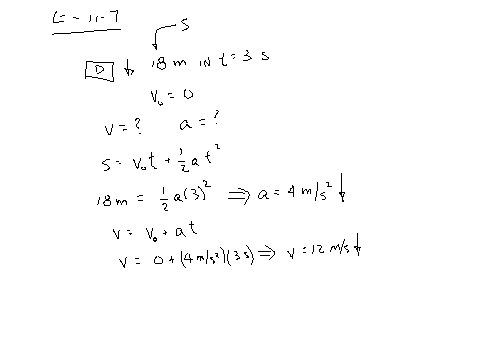 S
D ↓ 18 m IN t = 3 s
V₀ = 0
V = ? a = ?
S = V₀t + ½at²
18 m = ½a(3)² ⟹ a = 4 m/s² ↓
V = V₀ + at
V = 0 + (4 m/s²)(3 s) ⟹ V = 12 m/s ↓